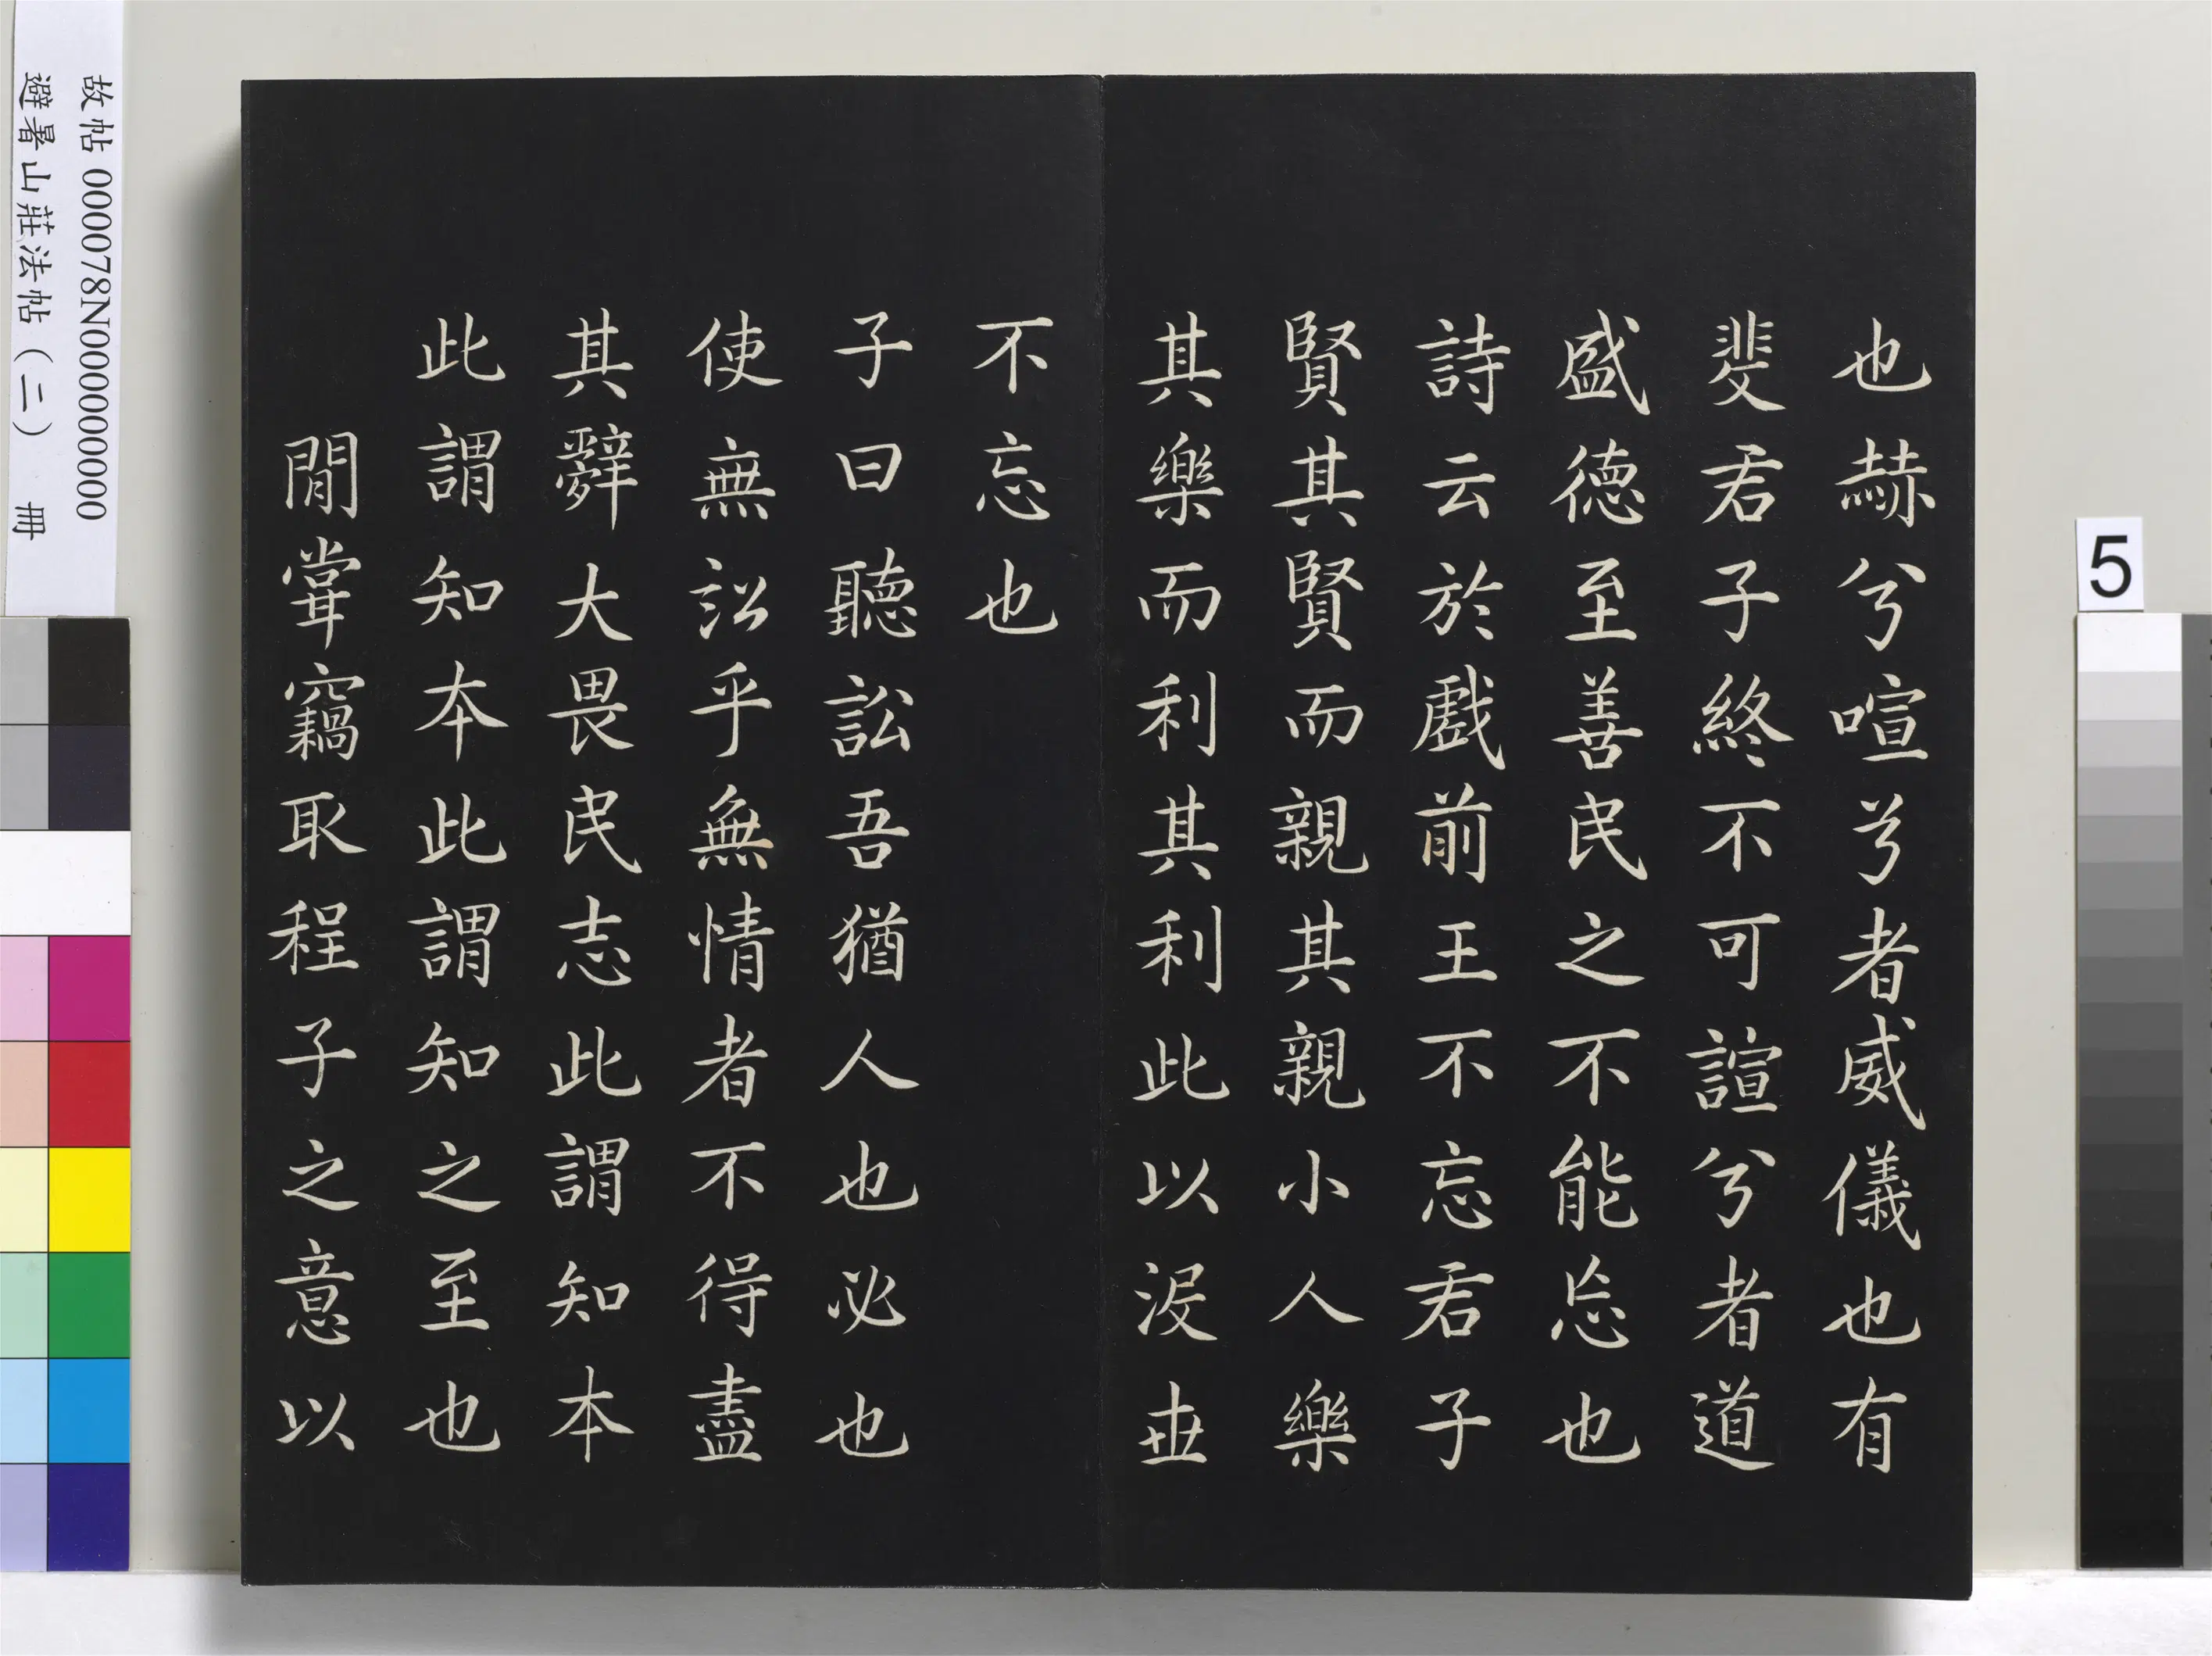 也赫兮喧兮者威儀也有
斐君子終不可諠兮者道
盛德至善民之不能忘也
詩云於戲前王不忘君子
賢其賢而親其親小人樂
其樂而利其利此以沒世
不忘也
子曰聽訟吾猶人也必也
使無訟乎無情者不得盡
其辭大畏民志此謂知本
此謂知本此謂知之至也
閒嘗竊取程子之意以
故帖 000078N000000000
避暑山莊法帖（二） 冊
5